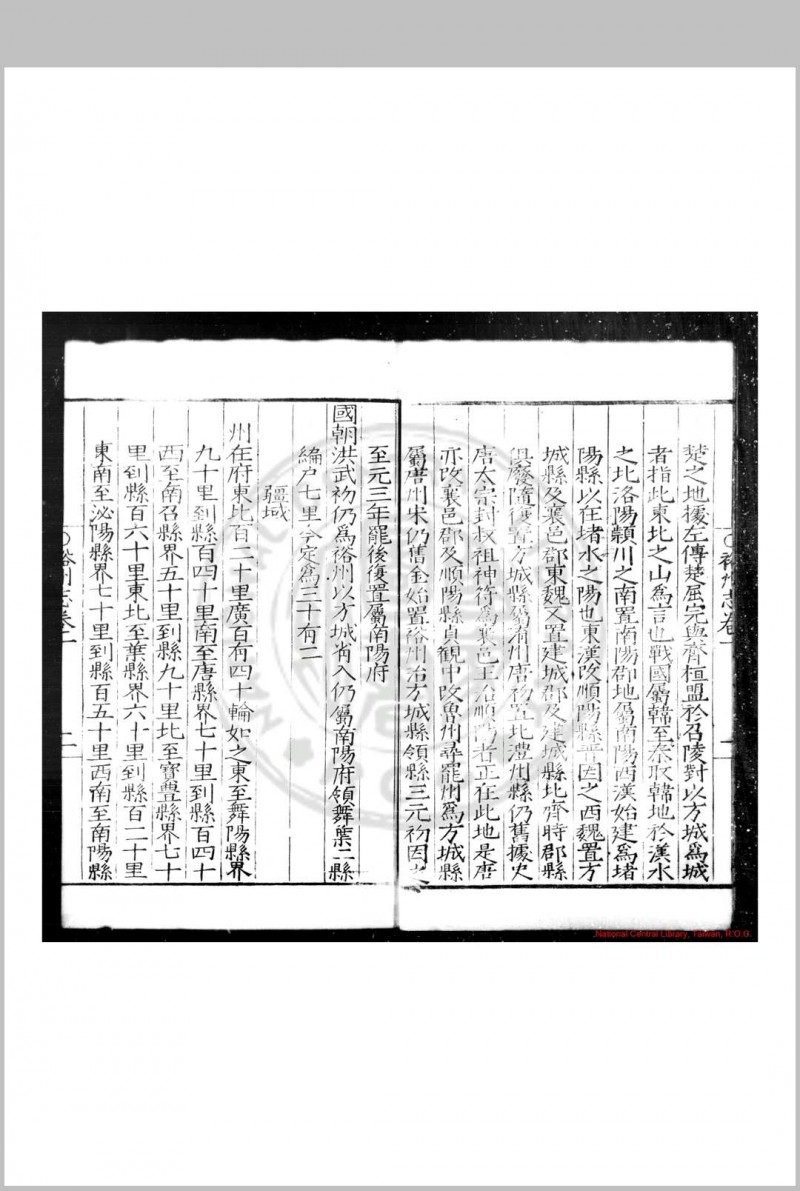 楚之地據左傳楚屈完與齊桓盟於召陵對以方城為城
者指此東北之山為言也戰國屬韓至秦取韓地於漢水
之北洛陽潁川之南置南陽郡地屬南陽西漢始建為堵
陽縣以在堵水之陽也東漢改順陽縣晋因之西魏置方
城縣及襄邑郡東魏又置建城郡及建城縣北齊時郡縣
俱廢隋復置方城縣屬淯州唐初置北澧州縣仍舊據史
唐太宗封叔祖神符為襄邑王治順陽者正在此地是唐
亦改襄邑郡及順陽縣貞觀中改魯州尋罷州為方城縣
屬唐州宋仍舊金始置裕州治方城縣領縣三元初因之
至元三年罷後復置屬南陽府
國朝洪武初仍為裕州以方城省入仍屬南陽府領舞葉二縣
編户七里今定為三十有二
疆域
州在府東北百二十里廣百有四十輪如之東至舞陽縣界
九十里到縣百四十里南至唐縣界七十里到縣百四十
西至南召縣界五十里到縣九十里北至寶豐縣界七十
里到縣百六十里東北至葉縣界六十里到縣百二十里
東南至泌陽縣界七十里到縣百五十里西南至南陽縣
裕州志卷一
二
National Central Library, Taiwan, R.O.C.